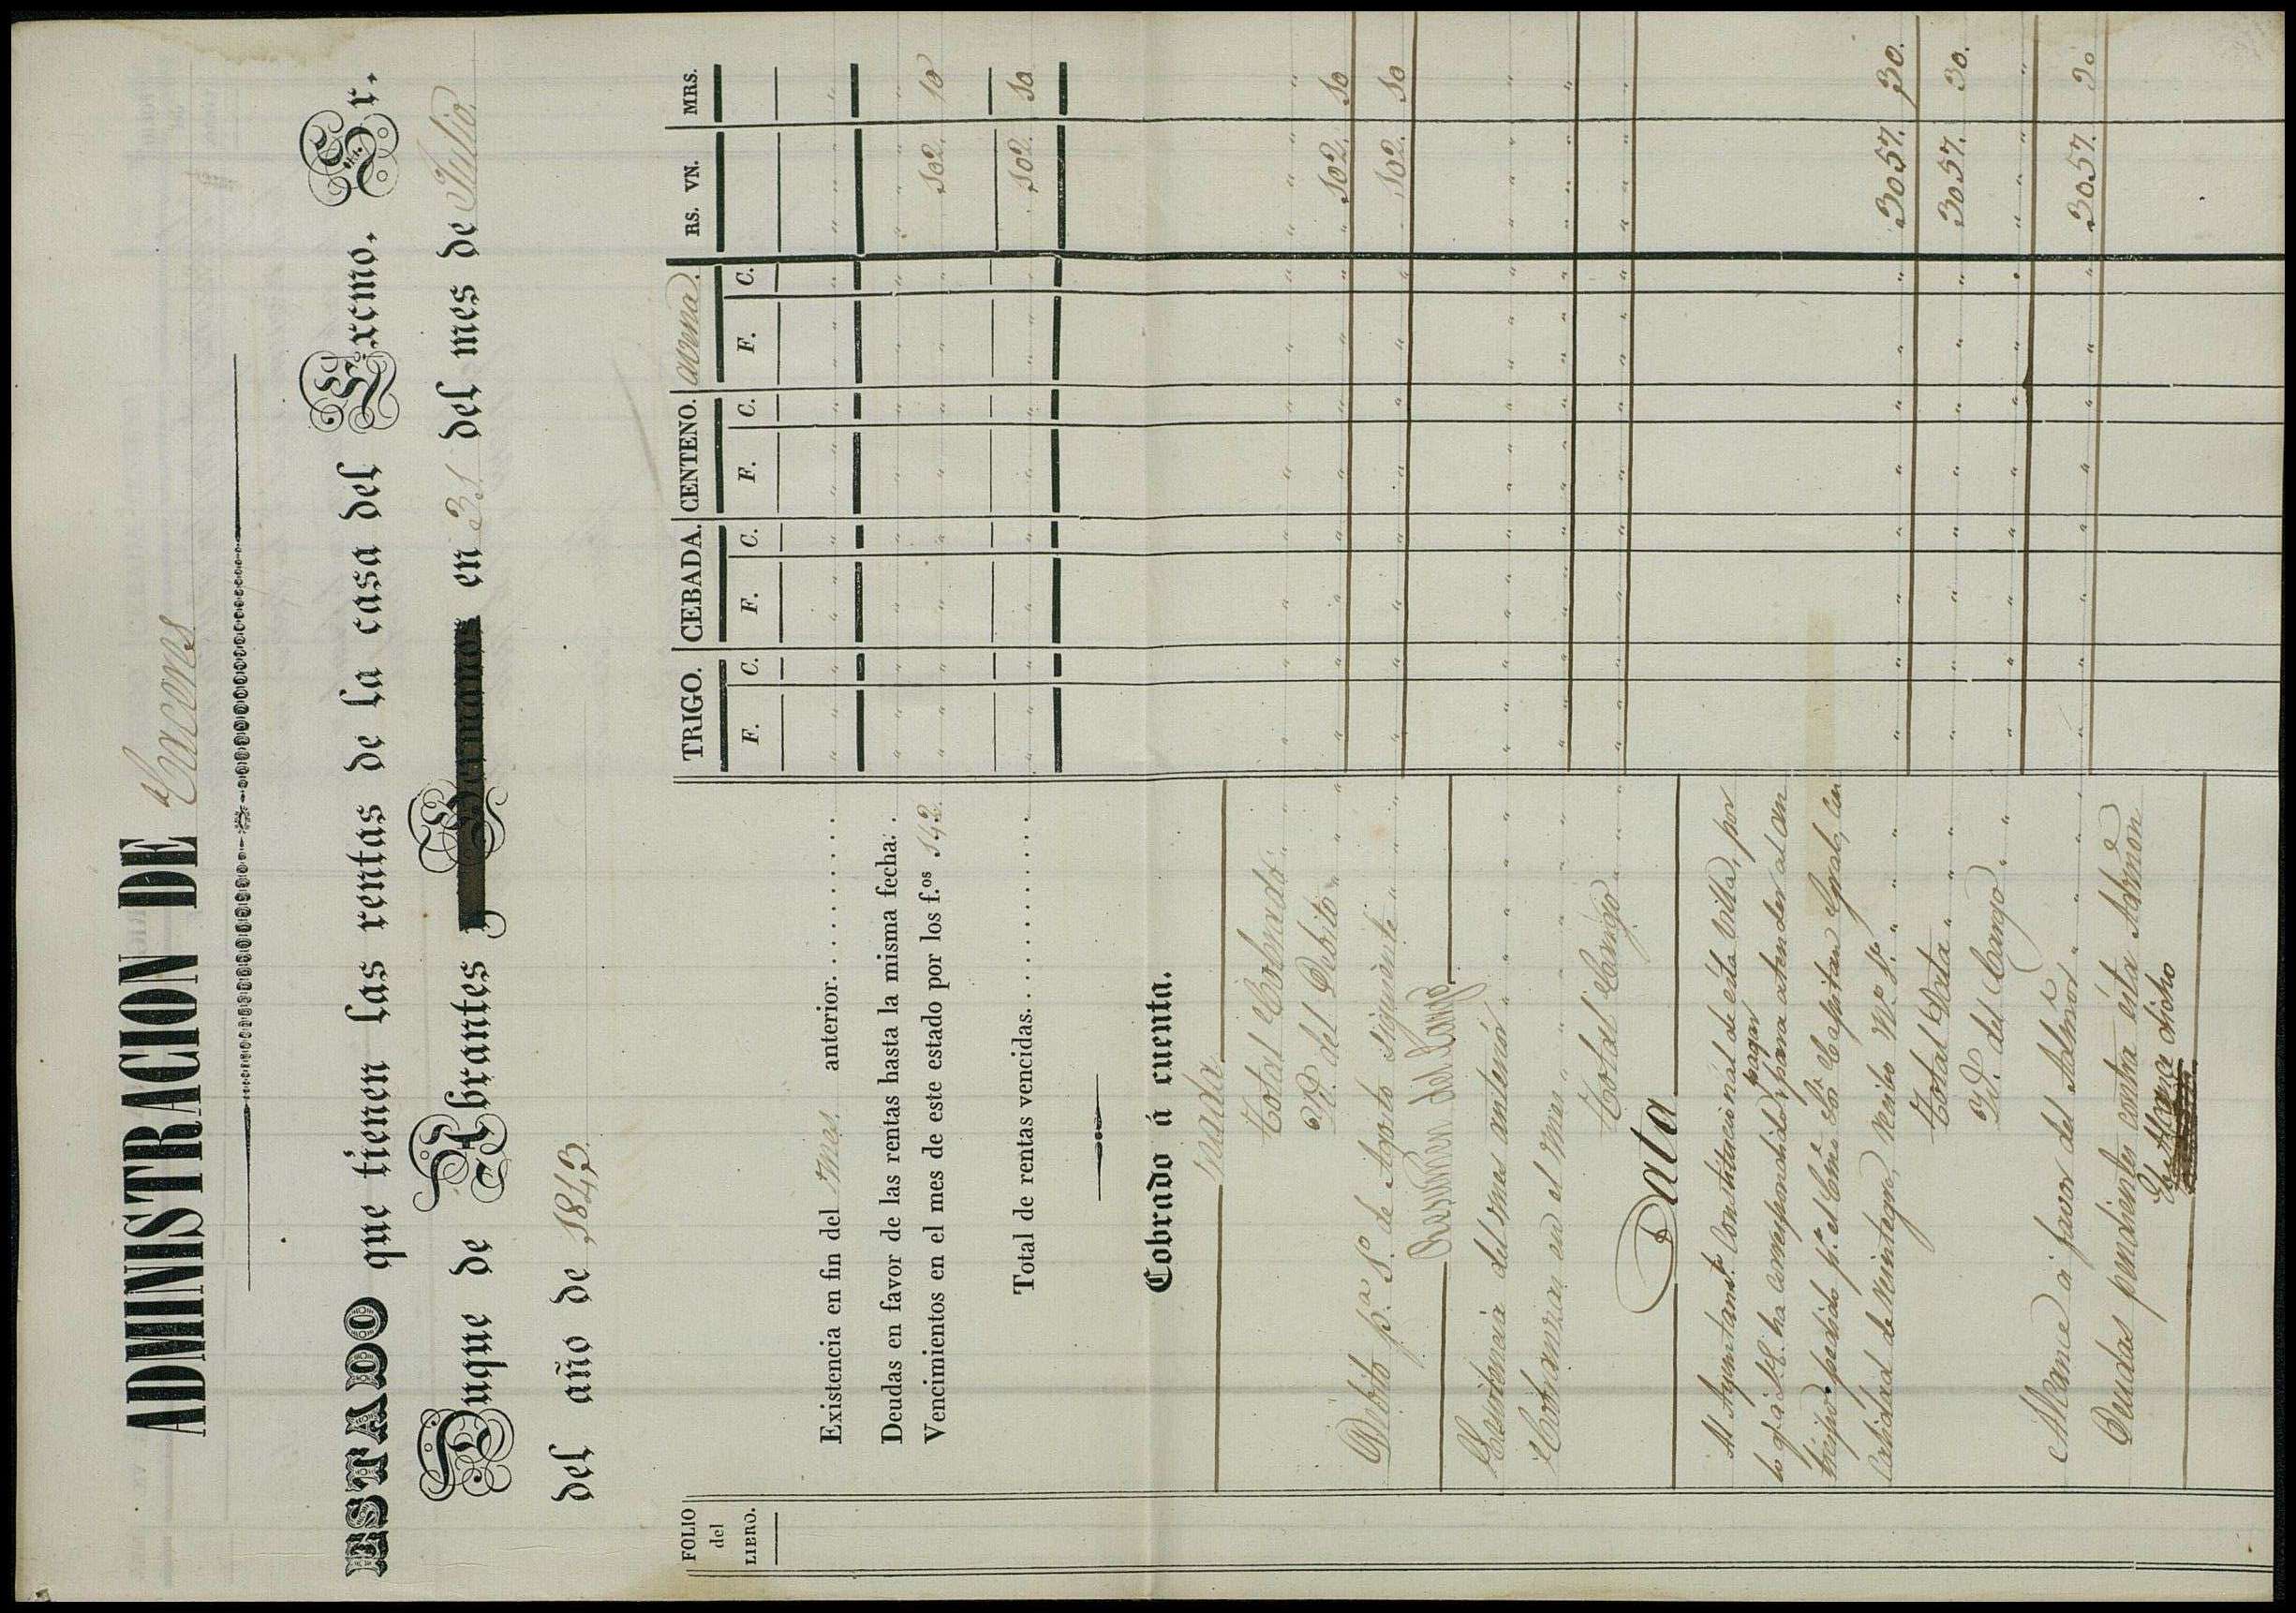 ADMINISTRACION DE Cáceres
ESTADO que tienen las rentas de la casa del Excmo. Sr.
Duque de Abrantes y en 31 del mes de Julio
del año de 1843.
FOLIO del LIBRO. TRIGO. CEBADA. CENTENO. avena. RS. VN. MRS.
F. C. F. C. F. C. F. C.
Existencia en fin del mes anterior. . . . . . . . . " " " " " " " " " "
Deudas en favor de las rentas hasta la misma fecha. . " " " " " " " " " "
Vencimientos en el mes de este estado por los f.os 142. " " " " " " " " 102. 10
Total de rentas vencidas. . . . . . . . . . " " " " " " " " 102. 10
Cobrado á cuenta.
nada
Total Cobrado. " " " " " " " " " "
Yd. del Debito " " " " " " " " " 102. 10
Debito p.a 1.o de Agosto siguiente " " " " " " " " " 102. 10
Resumen del Cargo
Existencia del mes anterior " " " " " " " " " "
Cobranzas en el mes " " " " " " " " " "
Total Cargo " " " " " " " " " "
Data
Al Ayuntam.to Constitucional de esta Villa, por
lo q.e a S.E. ha correspondido pagar para atender al an
ticipo pedido p.r el Exmo Sor. Capitan Gral, en
calidad de reintegro, recibo n.o 1.o " " " " " " " " " 3057. 30.
Total Data " " " " " " " " " 3057. 30.
Yd. del Cargo " " " " " " " " " "
Alcance a favor del Admor " " " " " " " " " 3057. 30
Deudas pendientes contra esta Admon
El Alcance dicho